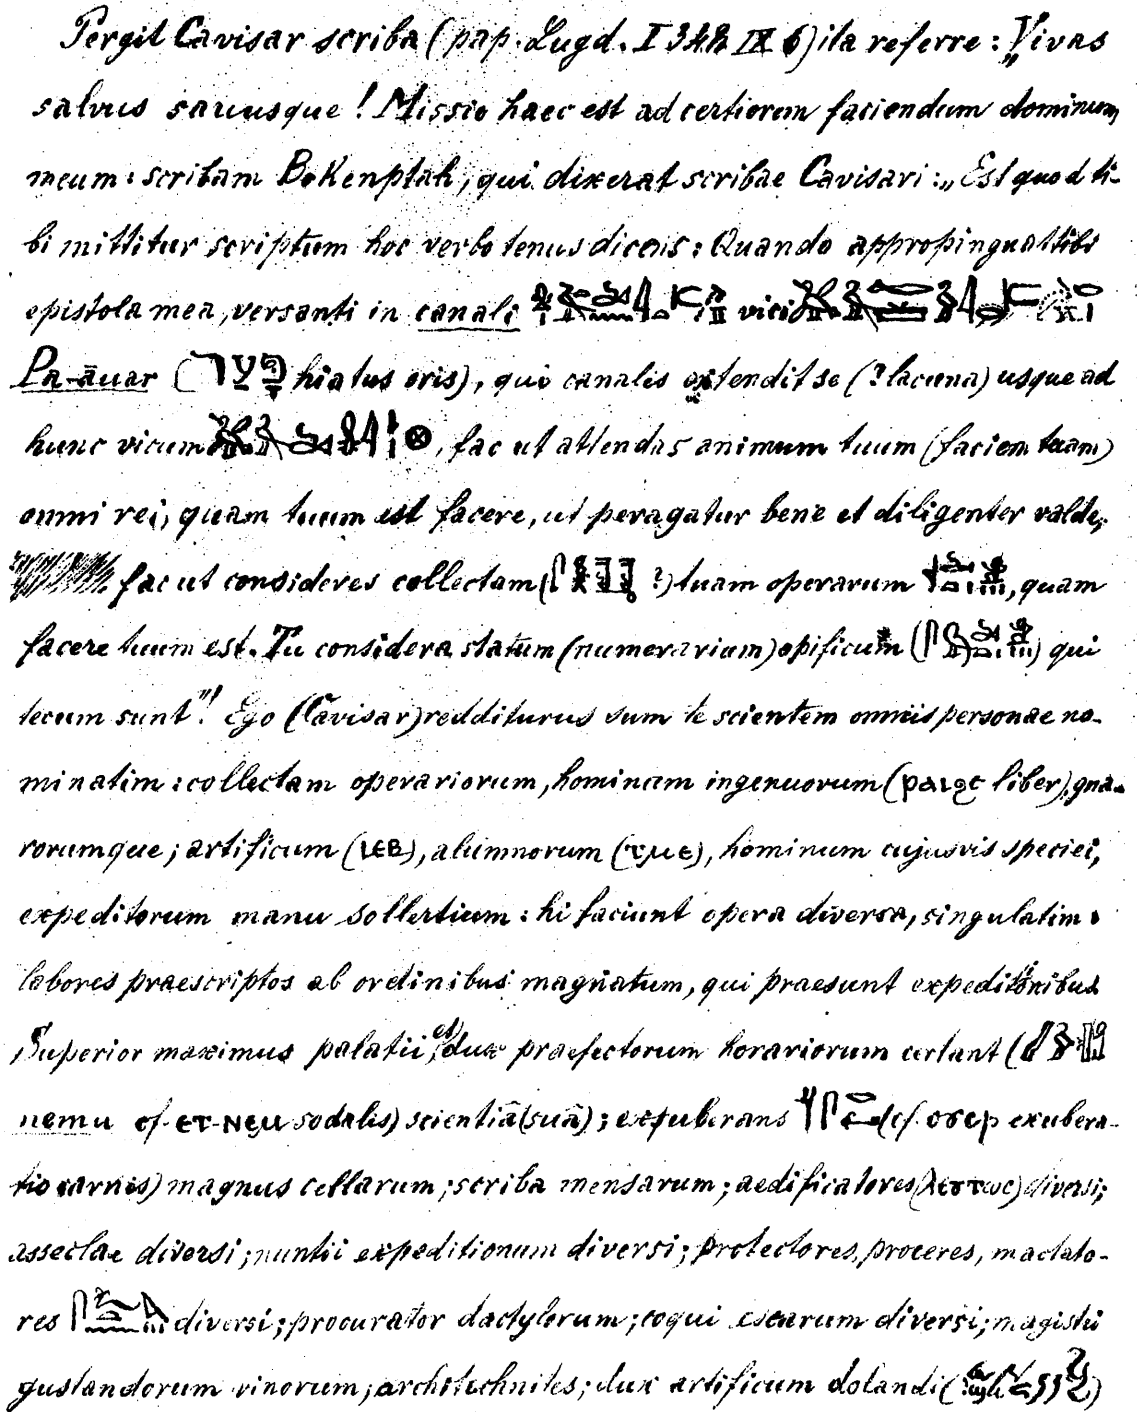 Pergit Cavisar scriba (pap. Lugd. I 348 IX 6) ita referre: „Vivas
salvus sanusque! Missio haec est ad certiorem faciendum dominum
meum: scribam Bokenptah, qui dixerat scribae Cavisari: „Est quod ti-
bi mittitur scriptum hoc verbo tenus dicens: Quando appropinquat tibi
epistola mea, versanti in canali vici
Pa-āuar ( hiatus oris), qui canalis extendit se (? lacuna) usque ad
hunc vicum , fac ut attendas animum tuum (faciem tuam)
omni rei, quam tuum est facere, ut peragatur bene et diligenter valde;
fac ut consideres collectam ( ?) tuam operarum , quam
facere tuum est. Tu considera statum (numerarium) opificum ( ) qui
tecum sunt"! Ego (Cavisar) redditurus sum te scientem omnis personae no-
minatim: collectam operariorum, hominum ingenuorum (ⲣⲁⲓϩⲉ liber), gna-
rorumque; artificum (ⲓⲉⲃ), alumnorum (ⲧⲙⲉ), hominum cujusvis speciei,
expeditorum manu sollertium: hi faciunt opera diversa, singulatim:
labores praescriptos ab ordinibus magnatum, qui praesunt expeditionibus
Superior maximus palatii, et dux praefectorum horariorum certant (
nemu cf. ⲉⲧ-ⲛⲉⲙ sodalis) scientiā (suā); exuberans (cf. ⲟⲩⲥⲉⲣ exubera-
tio carnis) magnus cellarum; scriba mensarum; aedificatores diversi;
asseclae diversi; nuntii expeditionum diversi; protectores, proceres, mactato-
res diversi; procurator dactylorum; coqui escarum diversi; magistri
gustandorum vinorum; architechnites; dux artificum dolandi ( )